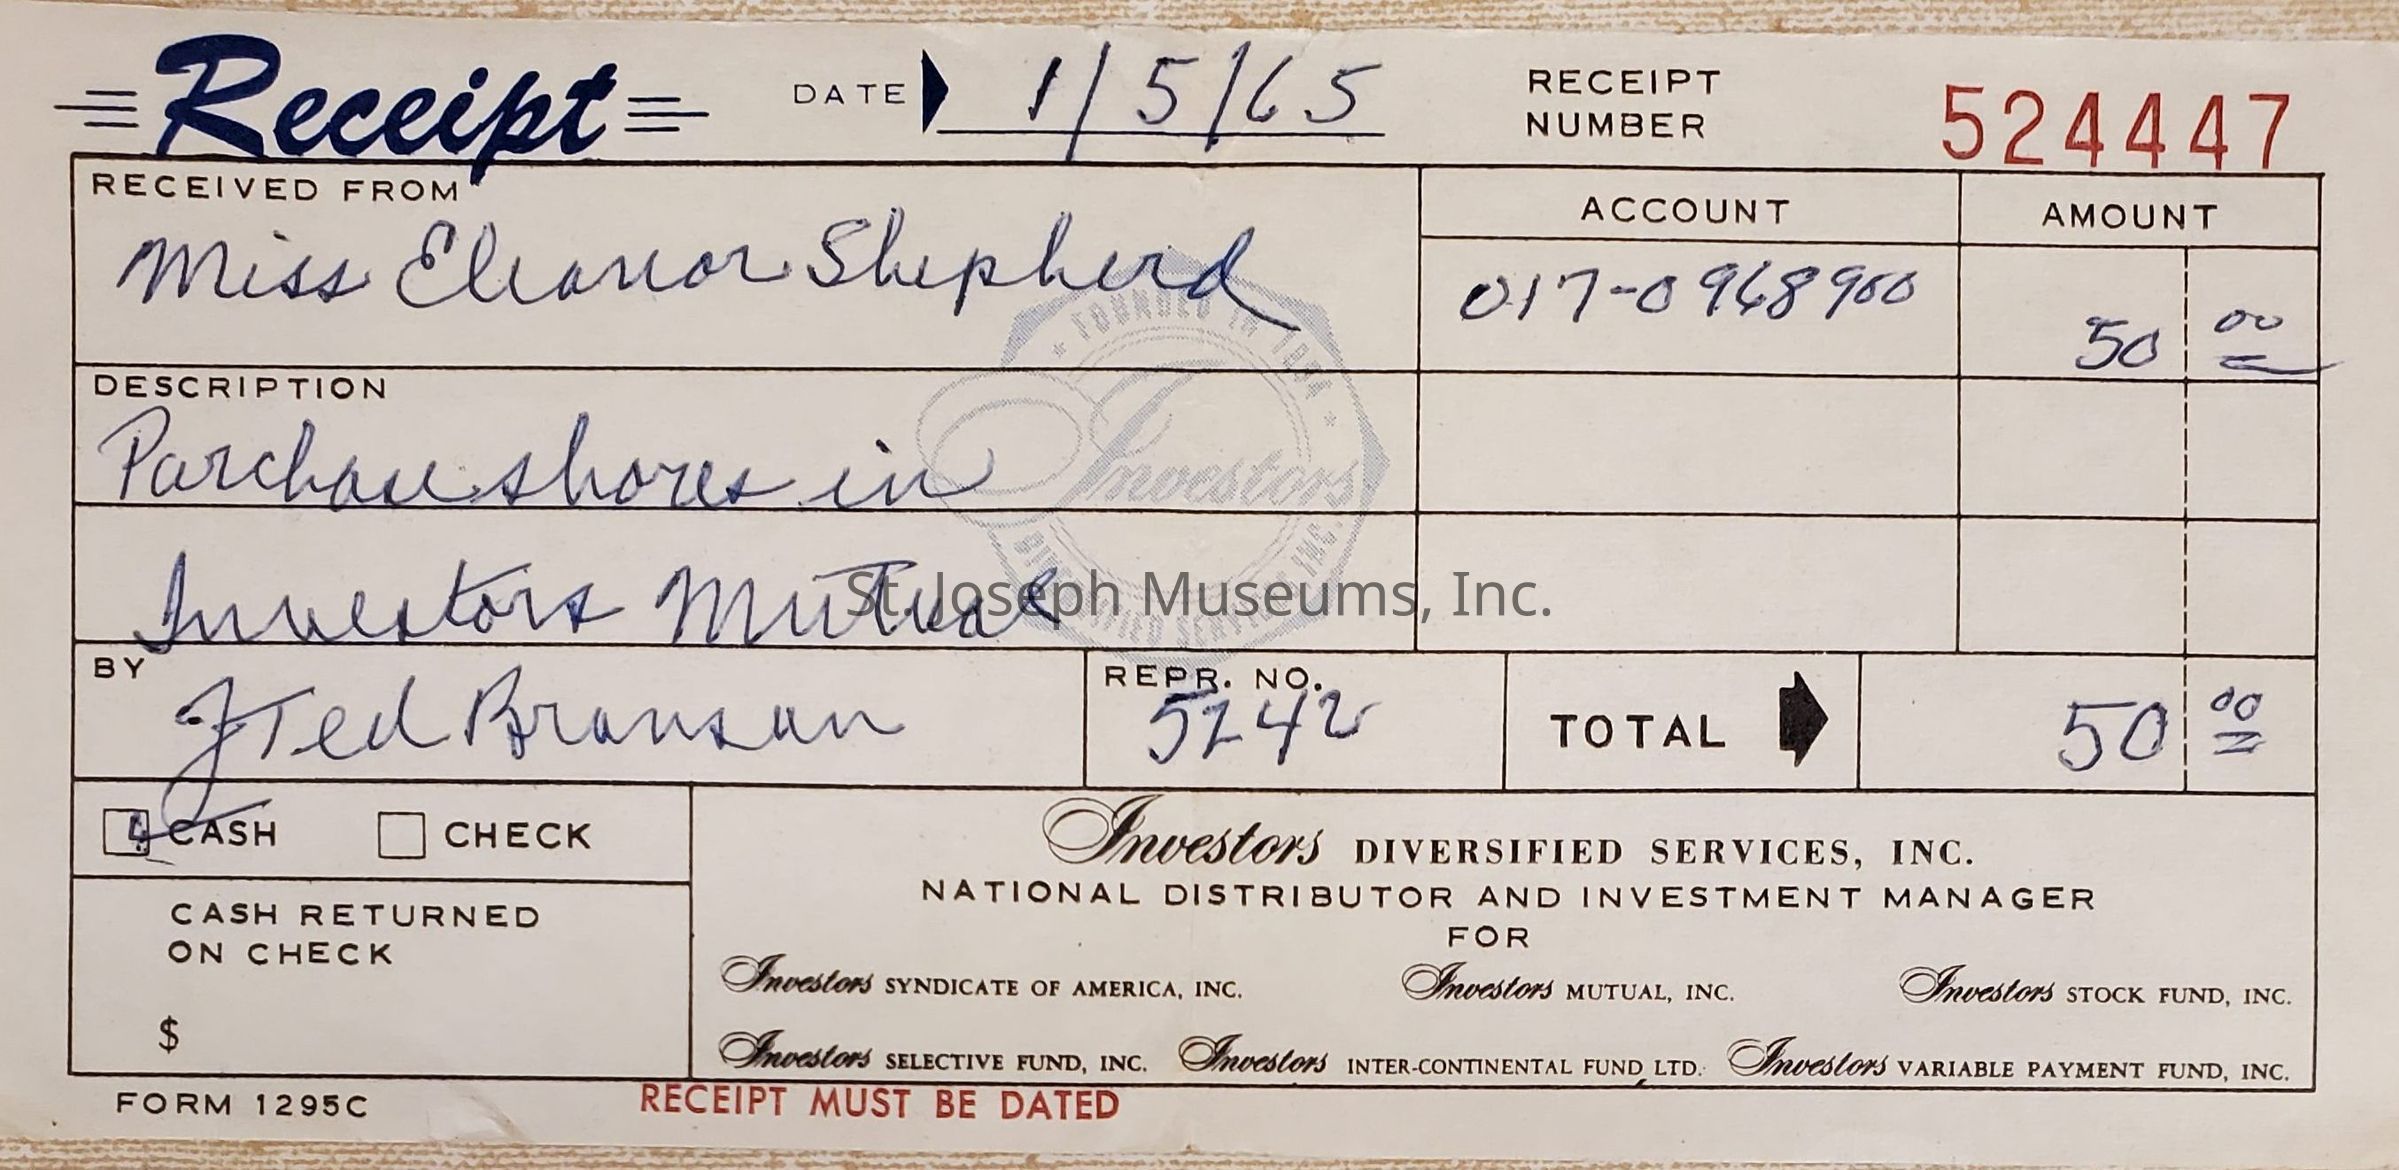 Receipt DATE 1/5/65 RECEIPT NUMBER 524447
RECEIVED FROM ACCOUNT AMOUNT
Miss Eleanor Shepherd 017-0968900 50 00
DESCRIPTION
Purchase shares in
Investors Mutual
BY J Ted Branson REPR. NO. 5242 TOTAL 50 00
CASH CHECK
CASH RETURNED
ON CHECK
$
Investors DIVERSIFIED SERVICES, INC.
NATIONAL DISTRIBUTOR AND INVESTMENT MANAGER
FOR
Investors SYNDICATE OF AMERICA, INC. Investors MUTUAL, INC. Investors STOCK FUND, INC.
Investors SELECTIVE FUND, INC. Investors INTER-CONTINENTAL FUND LTD. Investors VARIABLE PAYMENT FUND, INC.
FORM 1295C RECEIPT MUST BE DATED
FOUNDED IN 1894
Investors
DIVERSIFIED SERVICES INC.
St. Joseph Museums, Inc.